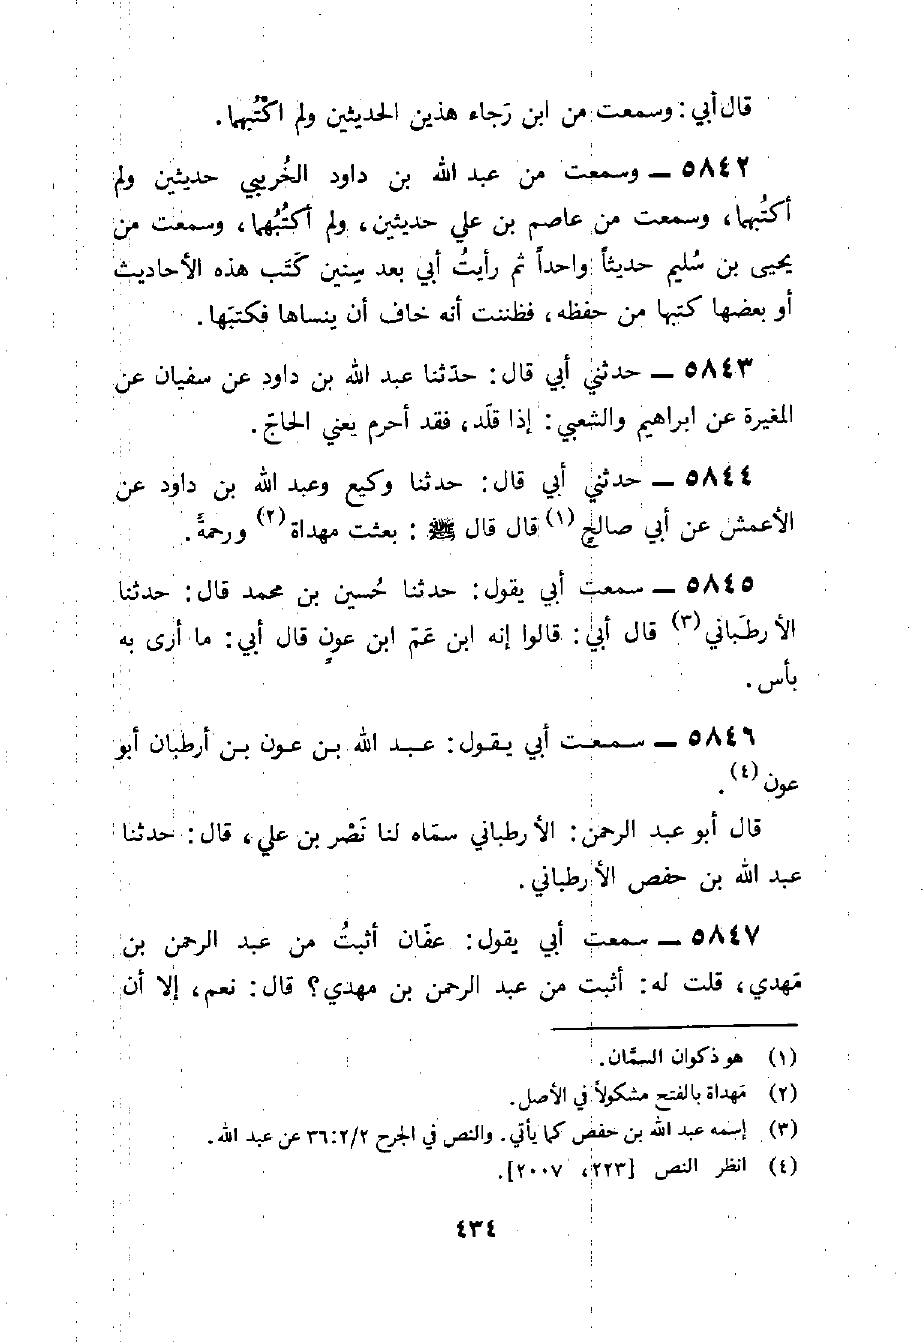 قال أبي: وسمعت من ابن رَجاء هذين الحديثين ولم اكْتُبهما.
٥٨٤٢ ــ وسمعت من عبد الله بن داود الخُريبي حديثين ولم
أكتُبهما، وسمعت من عاصم بن علي حديثين، ولم أكتُبُهما، وسمعت من
يحيى بن سُليم حديثاً واحداً ثم رأيتُ أبي بعد سِنين كَتَب هذه الأحاديث
أو بعضها كتبها من حفظه، فظننت أنه خاف أن ينساها فكتبَها.
٥٨٤٣ ــ حدثني أبي قال: حدّثنا عبد الله بن داود عن سفيان عن
المغيرة عن ابراهيم والشعبي: إذا قلَّد، فقد أحرم يعني الحاجّ.
٥٨٤٤ ــ حدثني أبي قال: حدثنا وكيع وعبد الله بن داود عن
الأعمش عن أبي صالحٍ (١) قال قال ﷺ : بعثت مهداة (٢) ورحمةً.
٥٨٤٥ ــ سمعت أبي يقول: حدثنا حُسين بن محمد قال: حدثنا
الأرطَباني (٣) قال أبي: قالوا إنه ابن عَمّ ابن عونٍ قال أبي: ما أرى به
بأس.
٥٨٤٦ ــ سمعت أبي يقول: عبد الله بن عون بن أرطبان أبو
عون (٤).
قال أبو عبد الرحمن: الأرطباني سمّاه لنا نَصْر بن علي، قال: حدثنا
عبد الله بن حفص الأرطباني.
٥٨٤٧ ــ سمعت أبي يقول: عفّان أثبتُ من عبد الرحمن بن
مَهدي، قلت له: أثبت من عبد الرحمن بن مهدي؟ قال: نعم، إلا أن
(١) هو ذكوان السمَّان.
(٢) مَهداة بالفتح مشكولاً في الأصل.
(٣) إسمه عبد الله بن حفص كما يأتي. والنص في الجرح ٣٦:٢/٢ عن عبد الله.
(٤) انظر النص [٢٢٣، ٢٠٠٧].
٤٣٤